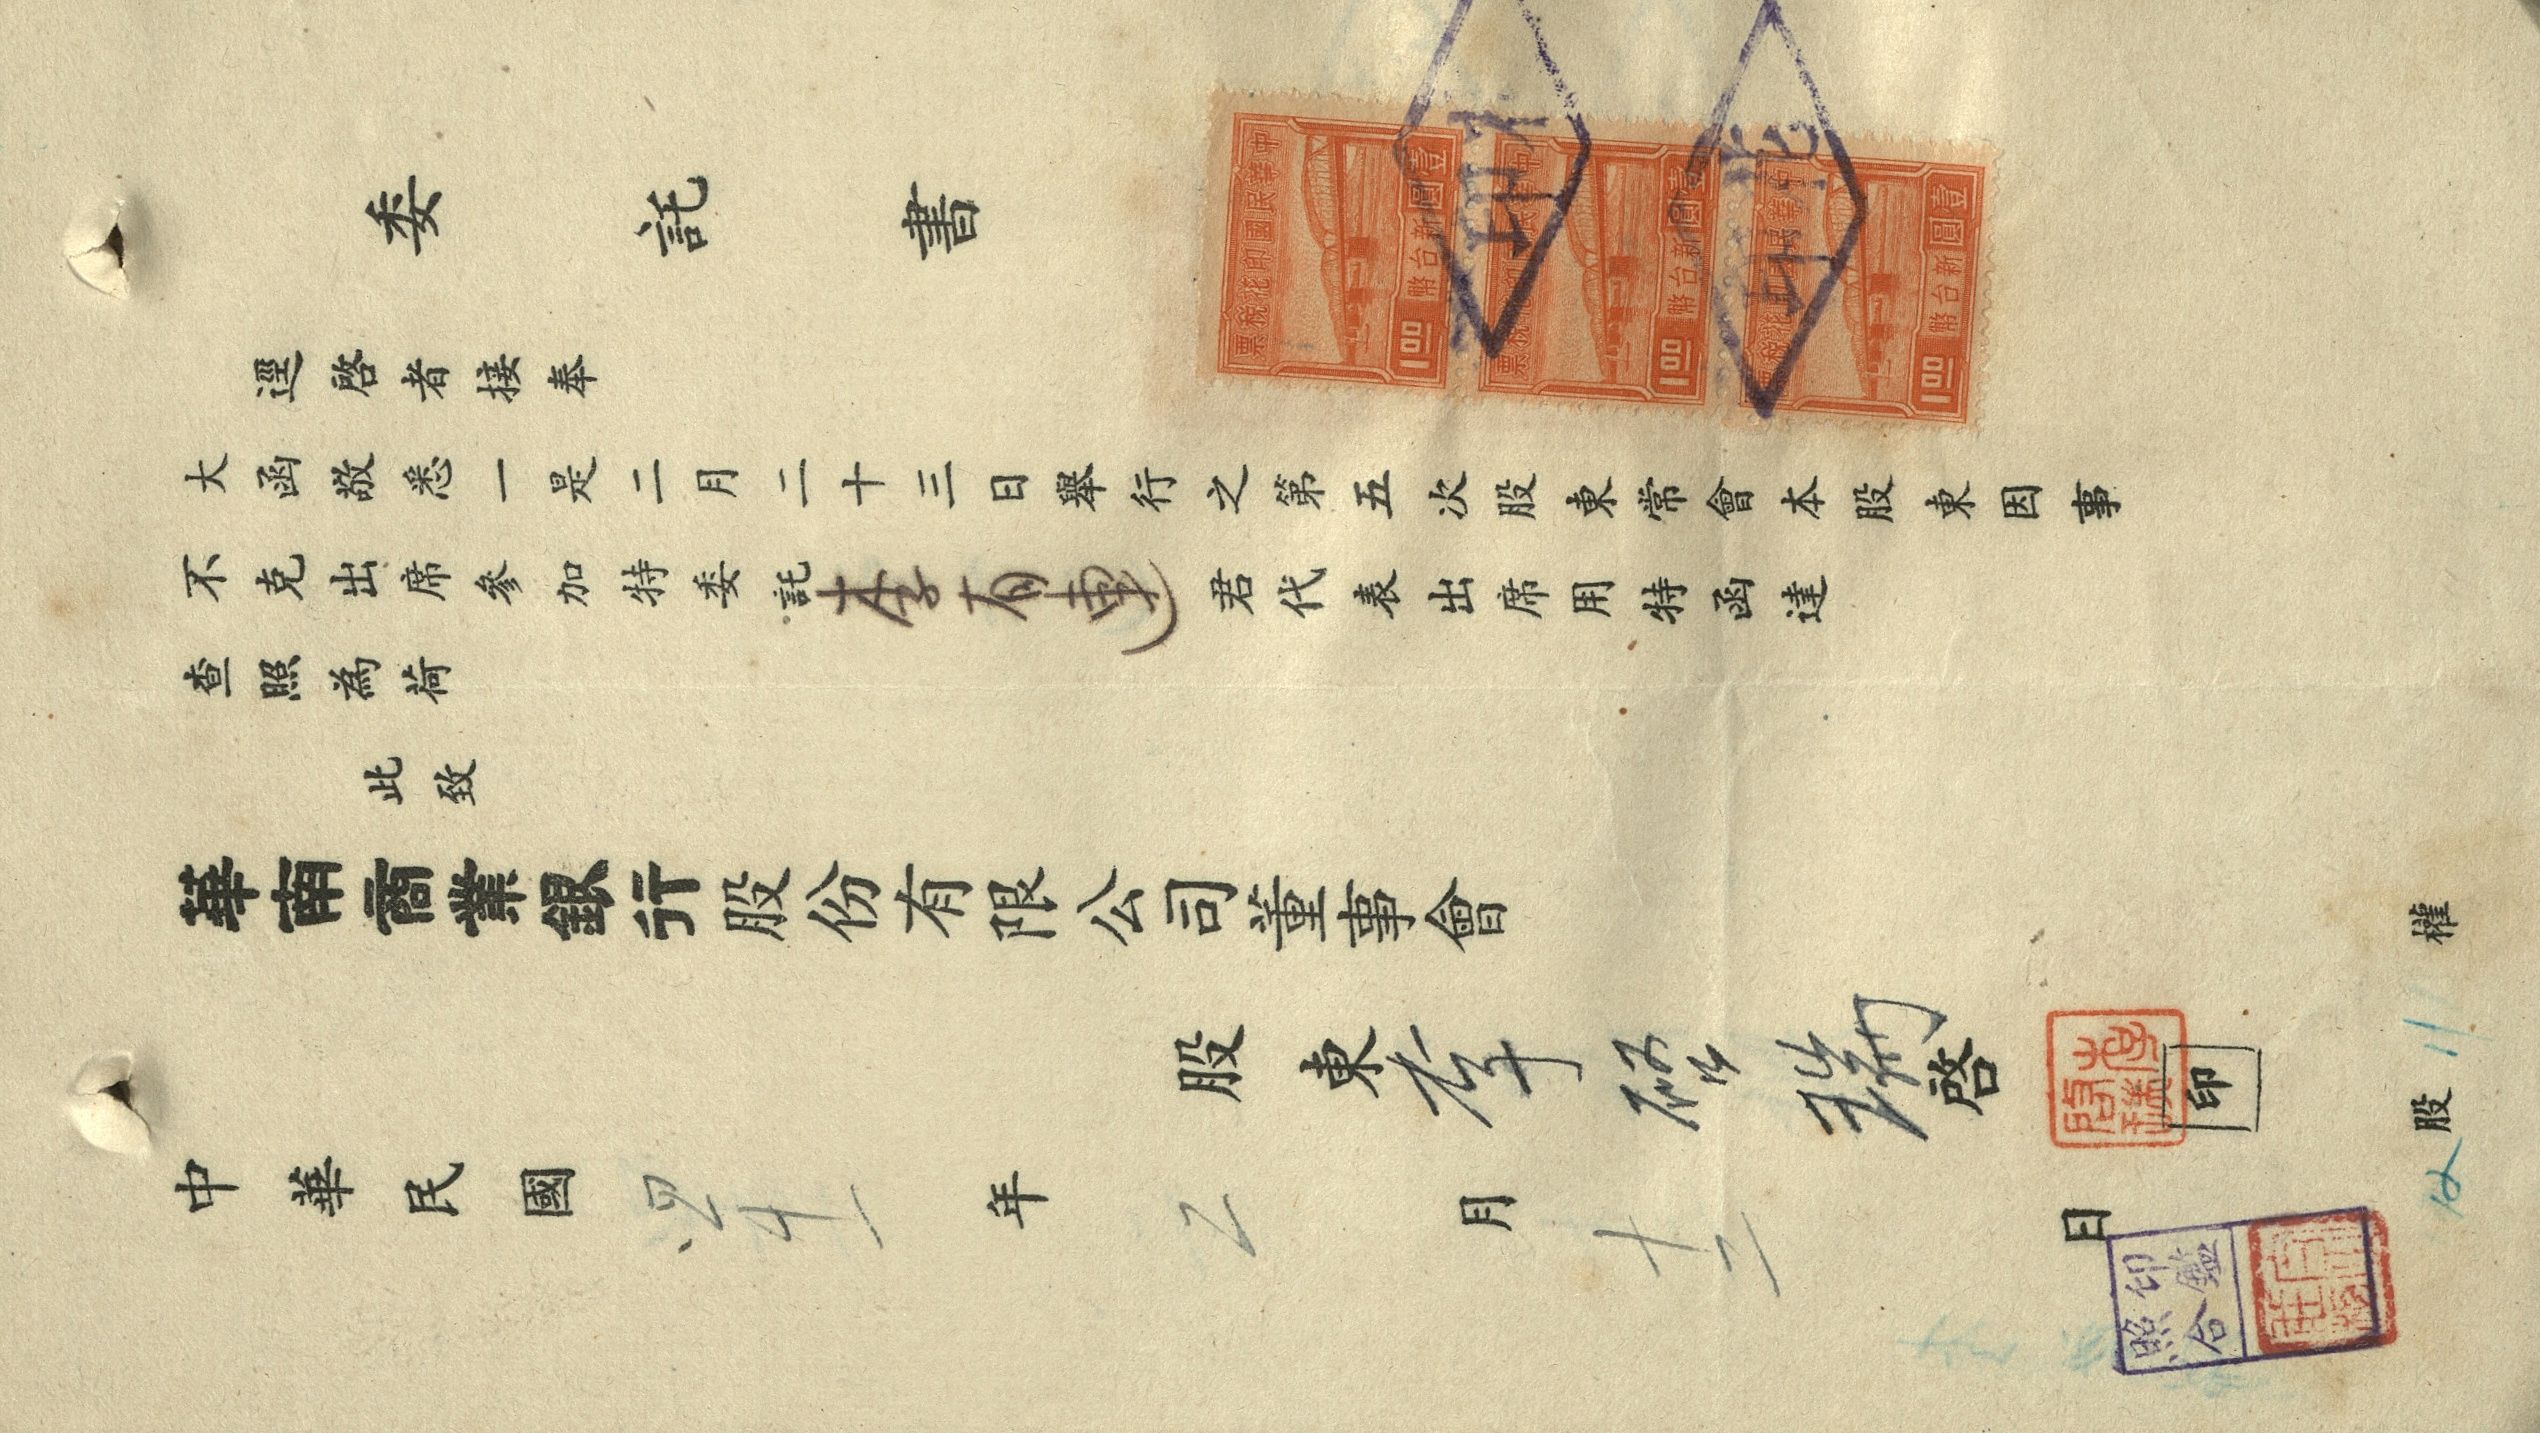 委託書
逕啓者接奉
大函敬悉一是二月二十三日舉行之第五次股東常會本股東因事
不克出席參加特委託李有連君代表出席用特函達
查照為荷
此致
華南商業銀行股份有限公司董事會
股東李啓啓
印
中華民國四十一年二月十二日
股 11 權
印鑑
照合
中華民國印花稅票
壹圓新台幣
1.00
中華民國印花稅票
壹圓新台幣
1.00
中華民國印花稅票
壹圓新台幣
1.00